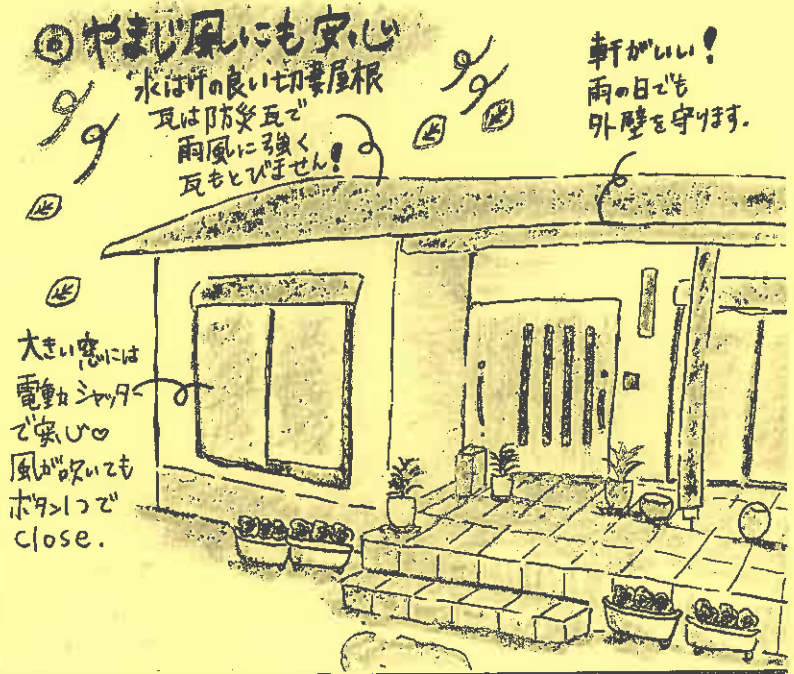 ◎やまじ風にも安心
水はけの良い切妻屋根
瓦は防災瓦で
雨風に強く
瓦もとびません!
軒がいい!
雨の日でも
外壁を守ります.
大きい窓には
電動シャッター
で安心♡
風が吹いても
ボタン1つで
close.